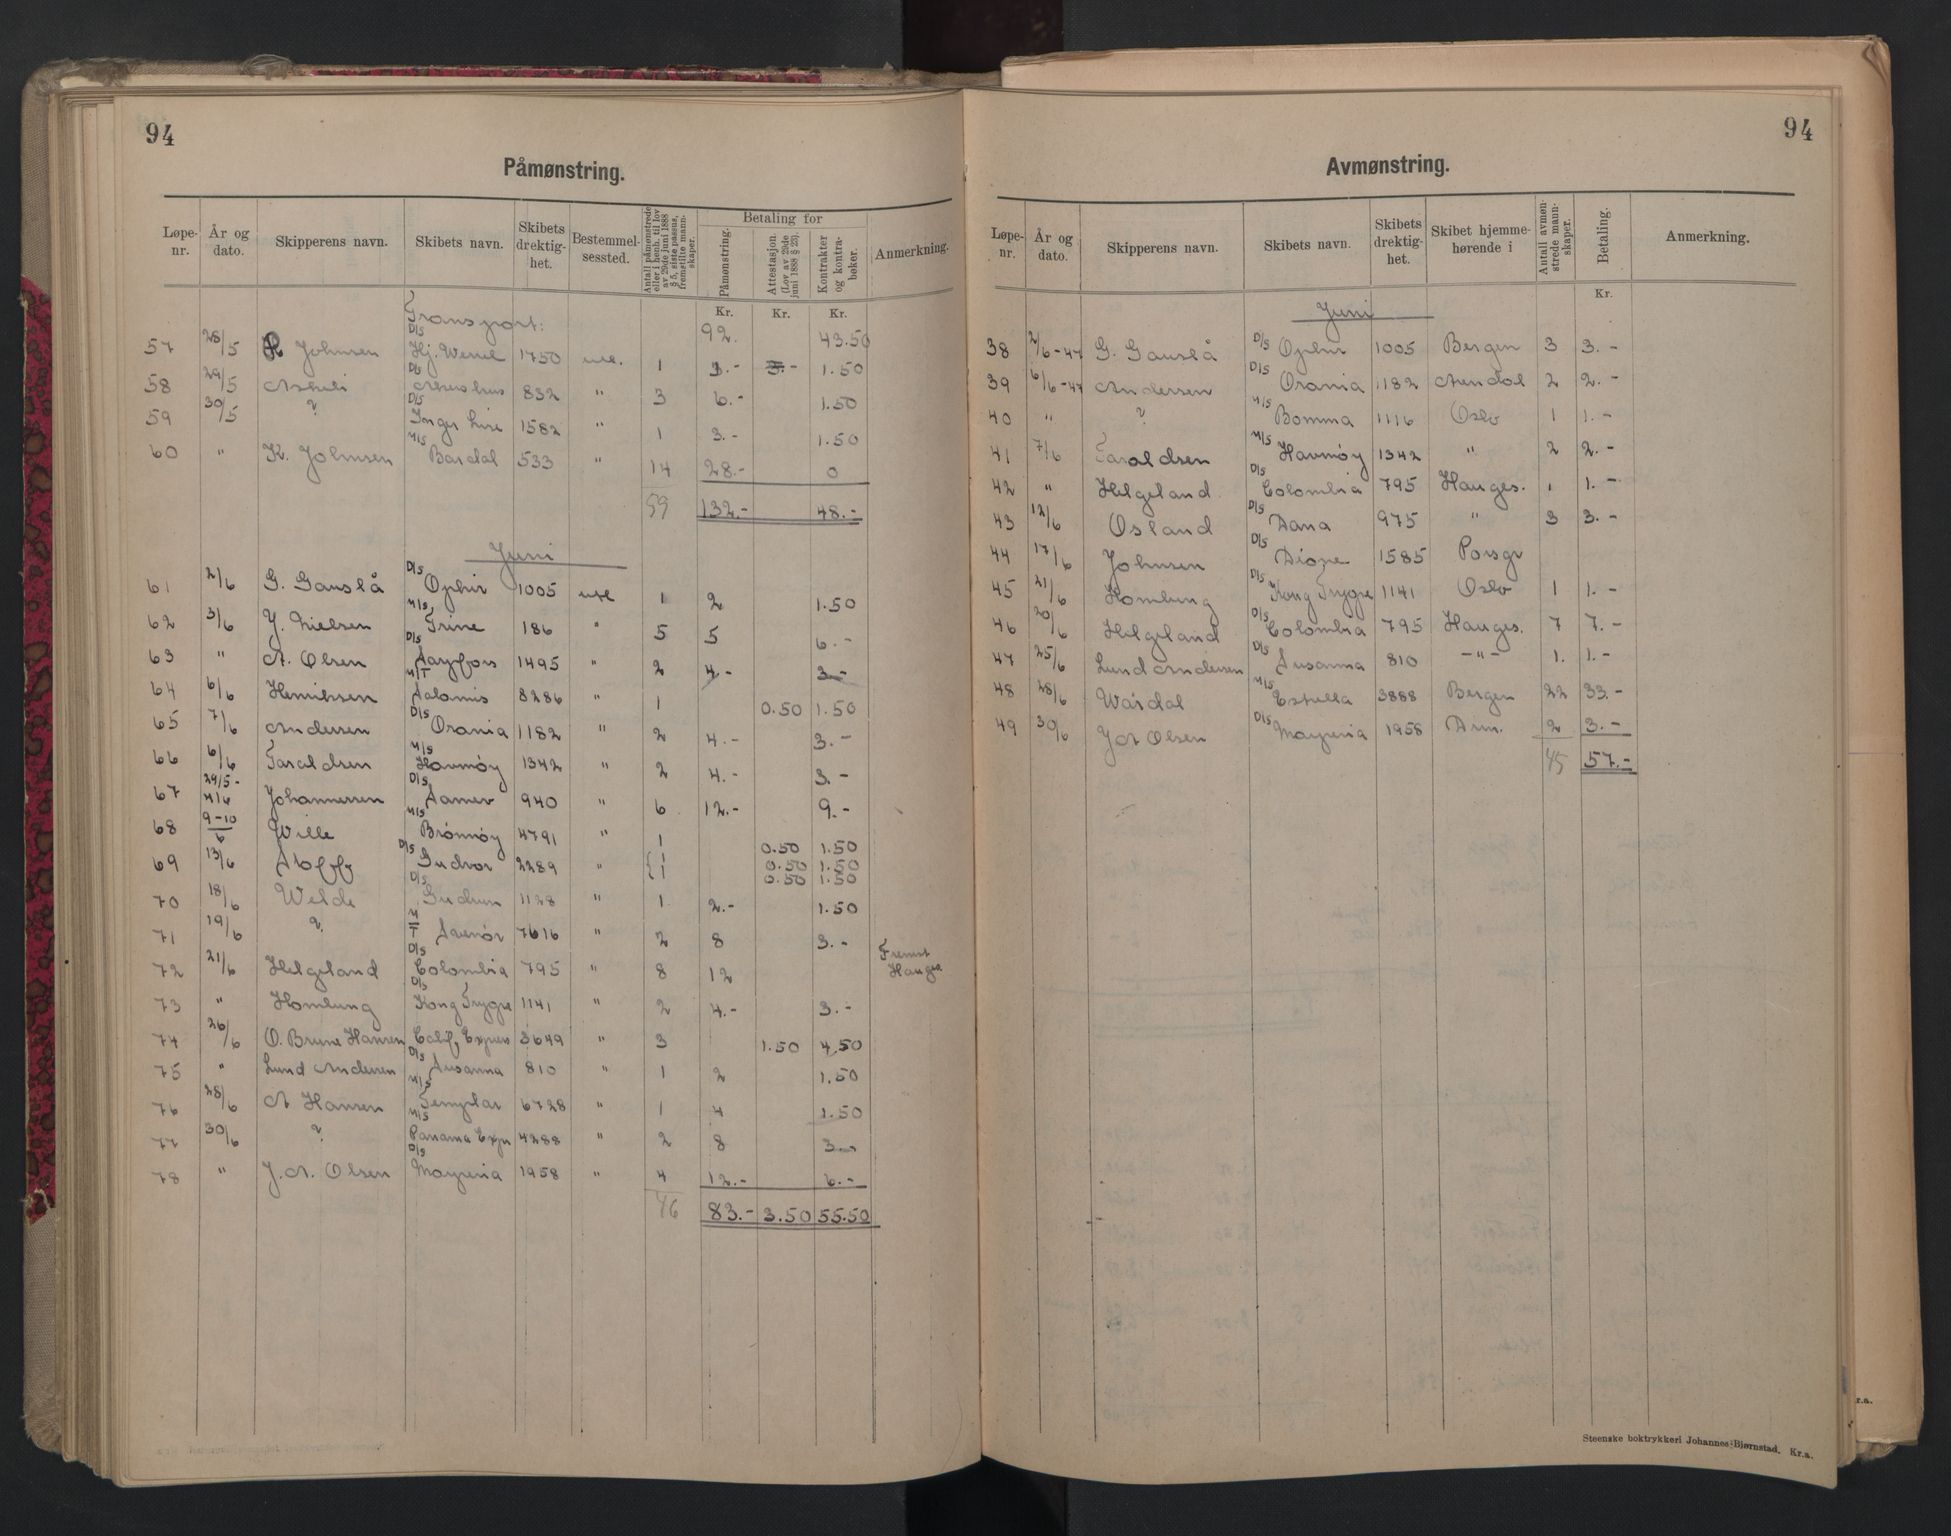 94
Påmønstring.
Løpe-nr. År og dato. Skipperens navn. Skibets navn. Skibets drektig-het. Bestemmel-sessted. Antall påmønstrede eller i henh. til lov av 29de juni 1888 § 5, siste passus, fremstilte mann-skaper. Betaling for Påmønstring. Attestasjon. (Lov av 29de juni 1888 § 23). Kontrakter og kontra-bøker. Anmerkning.
Kr. Kr. Kr.
Transport: 92. 43.50
57 28/5 Johnsen D/S Hj. Wessel 1750 utl. 1 3.- 3.- 1.50
58 29/5 D/S Akershus 832 " 3 6.- 1.50
59 30/5 ? D/S Inger Lise 1582 " 1 3.- 1.50
60 " K. Johnsen M/S Bardal 533 " 14 28.- 0
59 132.- 48.-
Juni
61 2/6 G. Gauslå D/S Ophir 1005 utl 1 2 1.50
62 3/6 Y. Nielsen M/S Trine 186 " 5 5 6.-
63 " A. Olsen D/S Sarpfoss 1495 " 2 4.- 3.-
64 6/6 Henriksen M/T Salamis 8286 " 1 0.50 1.50
65 7/6 Andersen D/S Orania 1182 " 2 4.- 3.-
66 6/6 Taraldsen M/S Havmøy 1342 " 2 4.- 3.-
67 29/5- 4/6 Johannessen D/S Samev 940 " 6 12.- 9.-
68 9-10/6 Wille M/S Brønnøy 4791 " 1 0.50 1.50
69 13/6 D/S Gudvor 2289 " { 1 0.50 1.50
1 0.50 1.50
70 18/6 Welde D/S Gudrun 1128 " 1 2.- 1.50
71 19/6 ? M/T Svenør 7616 " 2 8 3.-
72 21/6 Helgeland D/S Colombia 795 " 8 12 Fremst Hauges.
73 " Homlung D/S Kong Trygve 1141 " 2 4.- 3.-
74 26/6 O. Brune Hansen Calif. Express 3649 " 3 1.50 4.50
75 " Lund Andersen D/S Susanna 810 " 1 2 1.50
76 28/6 A Hansen M/S Templar 6728 " 1 4 1.50
77 30/6 ? M/S Panama Expr 4288 " 2 8 3.-
78 " J. A. Olsen D/S Mayria 1958 " 4 12.- 6.-
46 83.- 3.50 55.50
94
Avmønstring.
Løpe-nr. År og dato. Skipperens navn. Skibets navn. Skibets drektig-het. Skibet hjemme-hørende i Antall avmøn-strede mann-skaper. Betaling. Anmerkning.
Kr.
Juni
38 2/6-47 G. Gauslå D/S Ophir 1005 Bergen 3 3.-
39 6/6-47 Andersen D/S Orania 1182 Arendal 2 2.-
40 " ? M/S Bomma 1116 Oslo 1 1.-
41 7/6 Taraldsen M/S Havmøy 1342 " 2 2.-
42 " Helgeland D/S Colombia 795 Hauges. 1 1.-
43 12/6 Osland D/S Dana 975 " 3 3.-
44 17/6 Johnsen D/S 1585 Porsgr
45 21/6 Homlung D/S Kong Trygve 1141 Oslo 1 1.-
46 20/6 Helgeland D/S Colombia 795 Hauges. 7 7.-
47 25/6 Lund Andersen D/S Susanna 810 -"- 1. 1.-
48 28/6 Wårdal M/S Estrella 3888 Bergen 22 33.-
49 30/6 J A Olsen D/S Mayria 1958 Arm. 2 3.-
45 57.-
Steenske boktrykkeri Johannes Bjørnstad. Kr.a.
r.a.